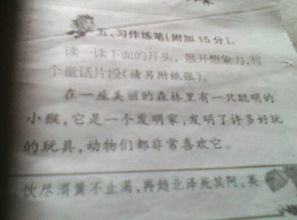 五、习作练笔(附加15分)。
读一读下面的开头,展开想象力,写
个童话片段(请另附纸张)。
在一座美丽的森林里有一只聪明的
小猴,它是一个发明家,发明了许多好玩
的玩具,动物们都非常喜欢它。
饮尽渭黄不止渴,再趋北泽死其阿。美